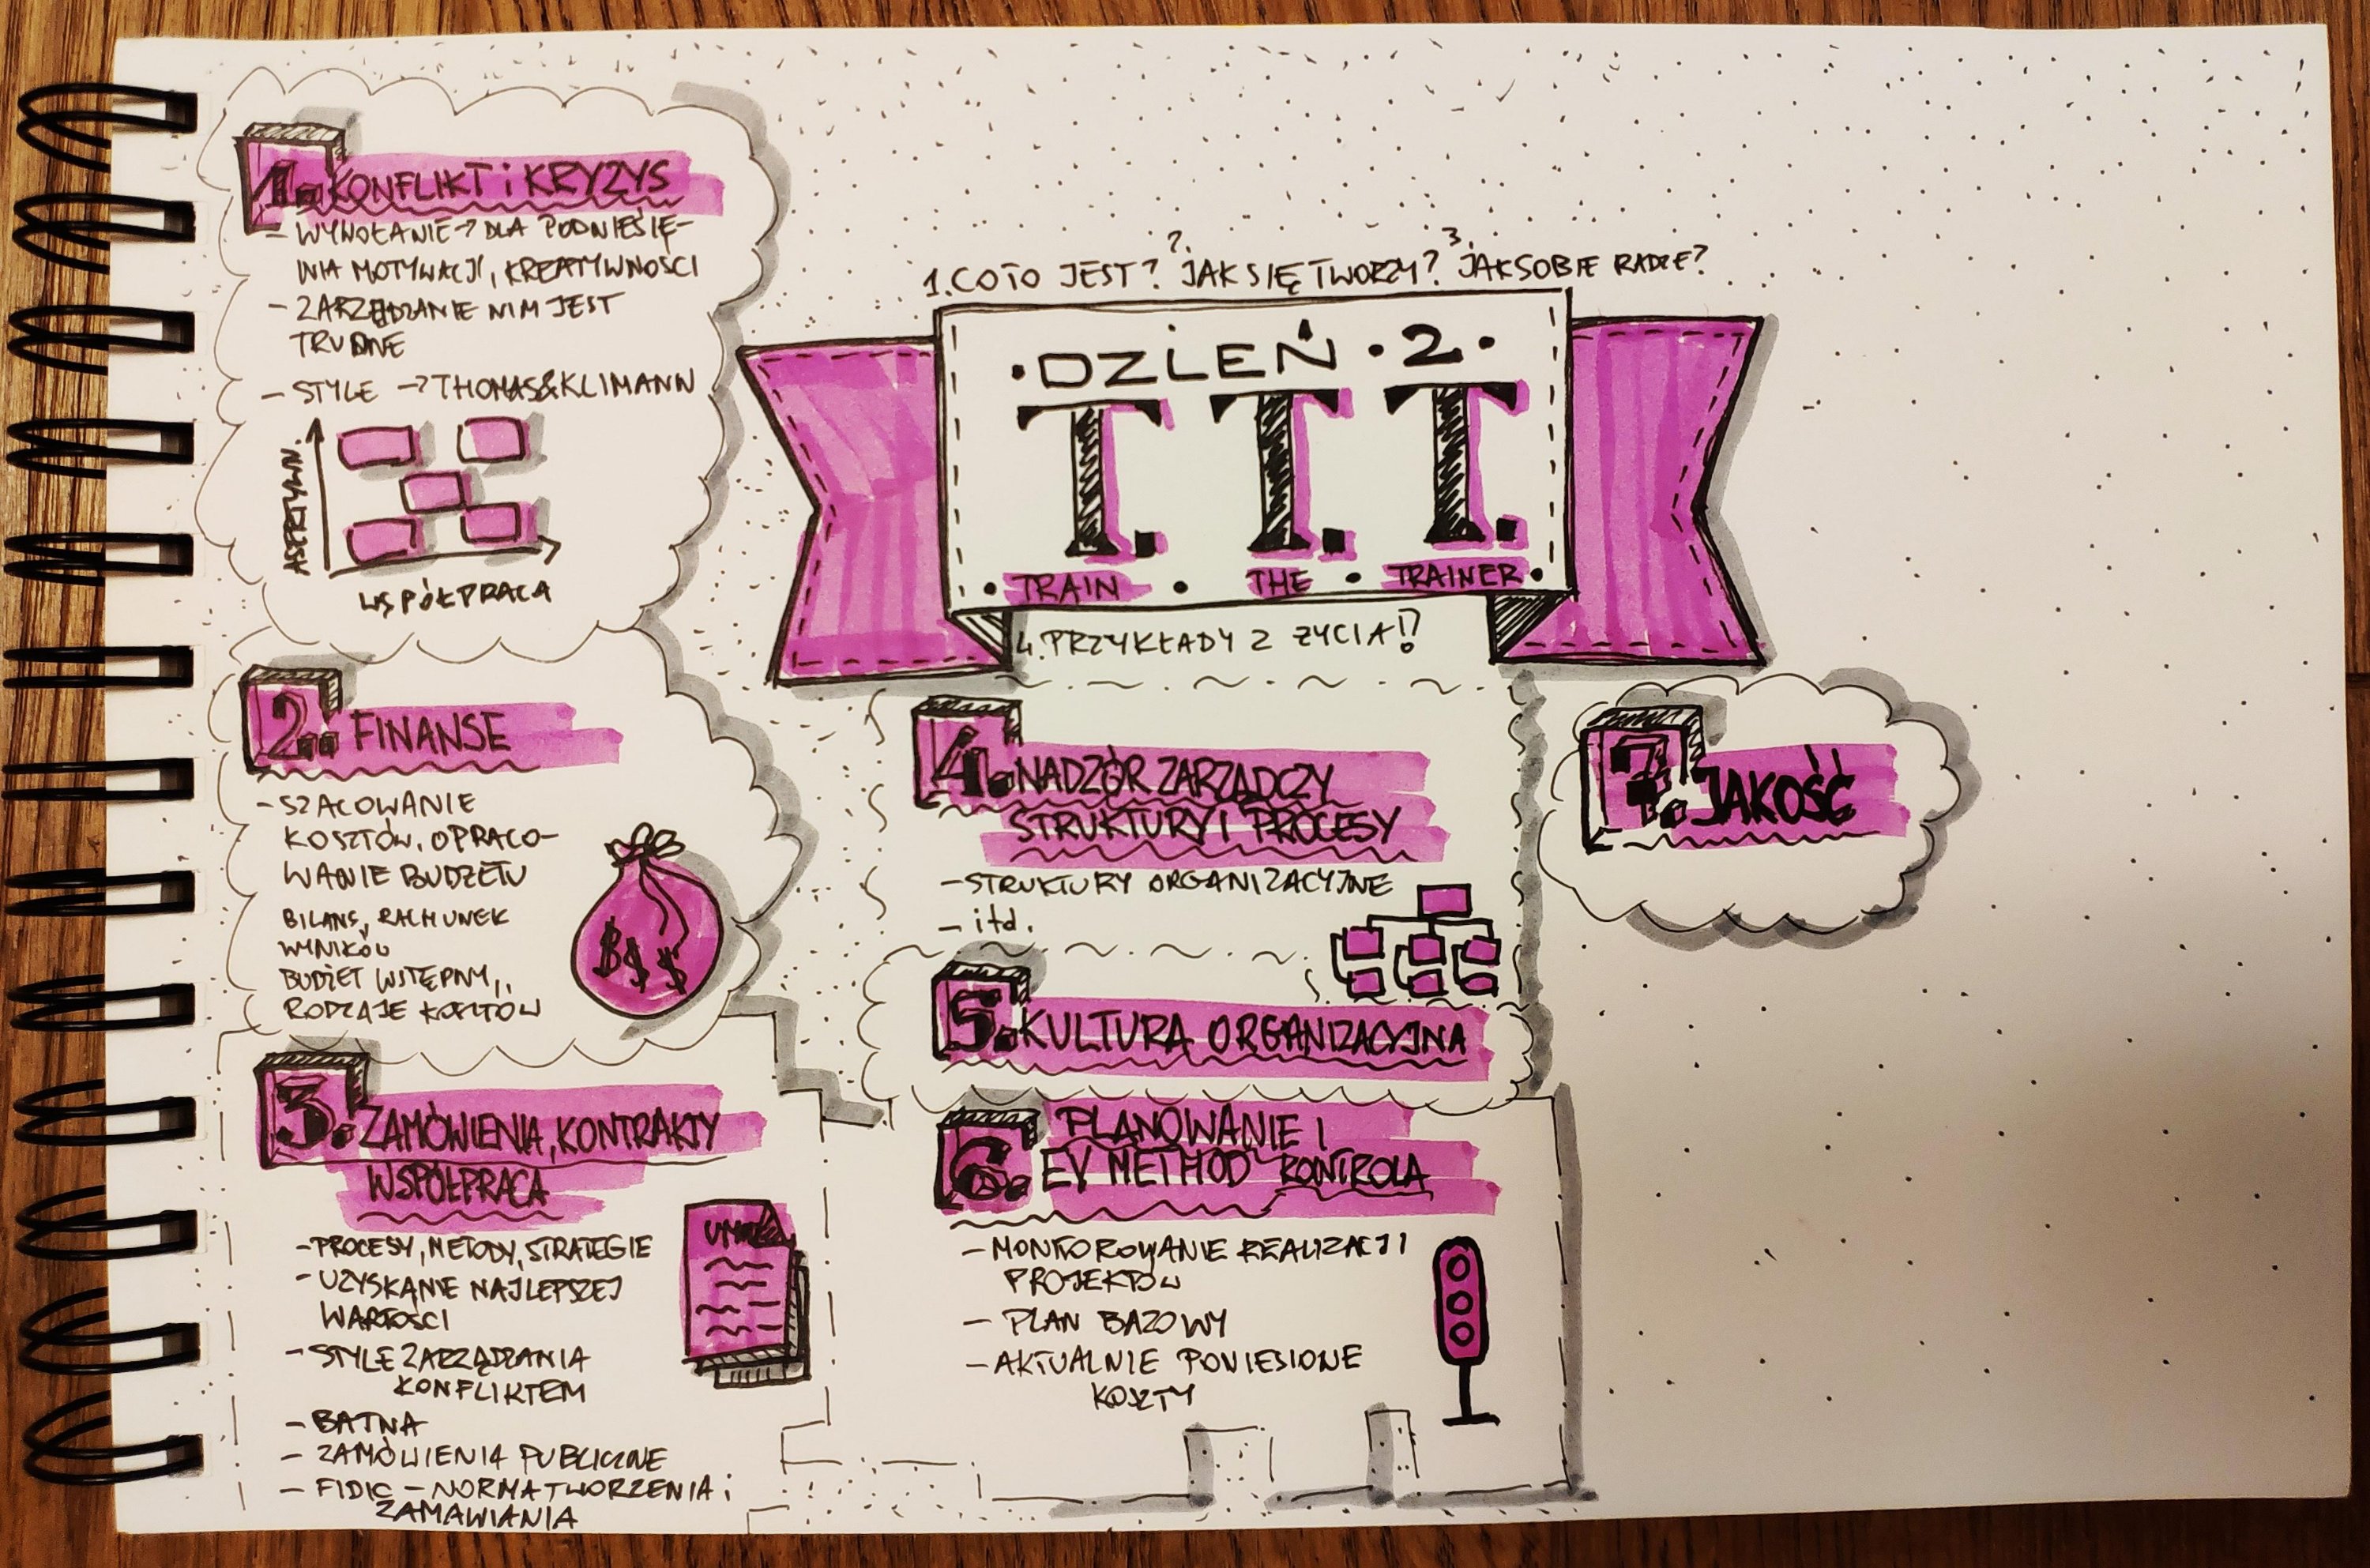 1. CO TO JEST? 2. JAK SIĘ TWORZY? 3. JAK SOBIE RADZIĆ?
• DZIEŃ • 2 •
T. T. T.
• TRAIN • THE • TRAINER •
4. PRZYKŁADY Z ŻYCIA!?
1. KONFLIKT i KRYZYS
- WYWOŁANIE → DLA PODNIESIE-
NIA MOTYWACJI, KREATYWNOŚCI
- ZARZĄDZANIE NIM JEST
TRUDNE
- STYLE → THOMAS&KLIMANN
ASERTYWN.
WSPÓŁPRACA
2. FINANSE
- SZACOWANIE
KOSZTÓW, OPRACO-
WANIE BUDŻETU
BILANS, RACHUNEK
WYNIKÓW
BUDŻET WSTĘPNY,
RODZAJE KOSZTÓW
$ $ $
3. ZAMÓWIENIA, KONTRAKTY
WSPÓŁPRACA
- PROCESY, METODY, STRATEGIE
- UZYSKANIE NAJLEPSZEJ
WARTOŚCI
- STYLE ZARZĄDZANIA
KONFLIKTEM
- BATNA
- ZAMÓWIENIA PUBLICZNE
- FIDIC - NORMA TWORZENIA i
ZAMAWIANIA
4. NADZÓR ZARZĄDCZY
STRUKTURY I PROCESY
- STRUKTURY ORGANIZACYJNE
- itd.
5. KULTURA ORGANIZACYJNA
6. PLANOWANIE I
EV METHOD KONTROLA
- MONITOROWANIE REALIZACJI
PROJEKTÓW
- PLAN BAZOWY
- AKTUALNIE PONIESIONE
KOSZTY
7. JAKOŚĆ